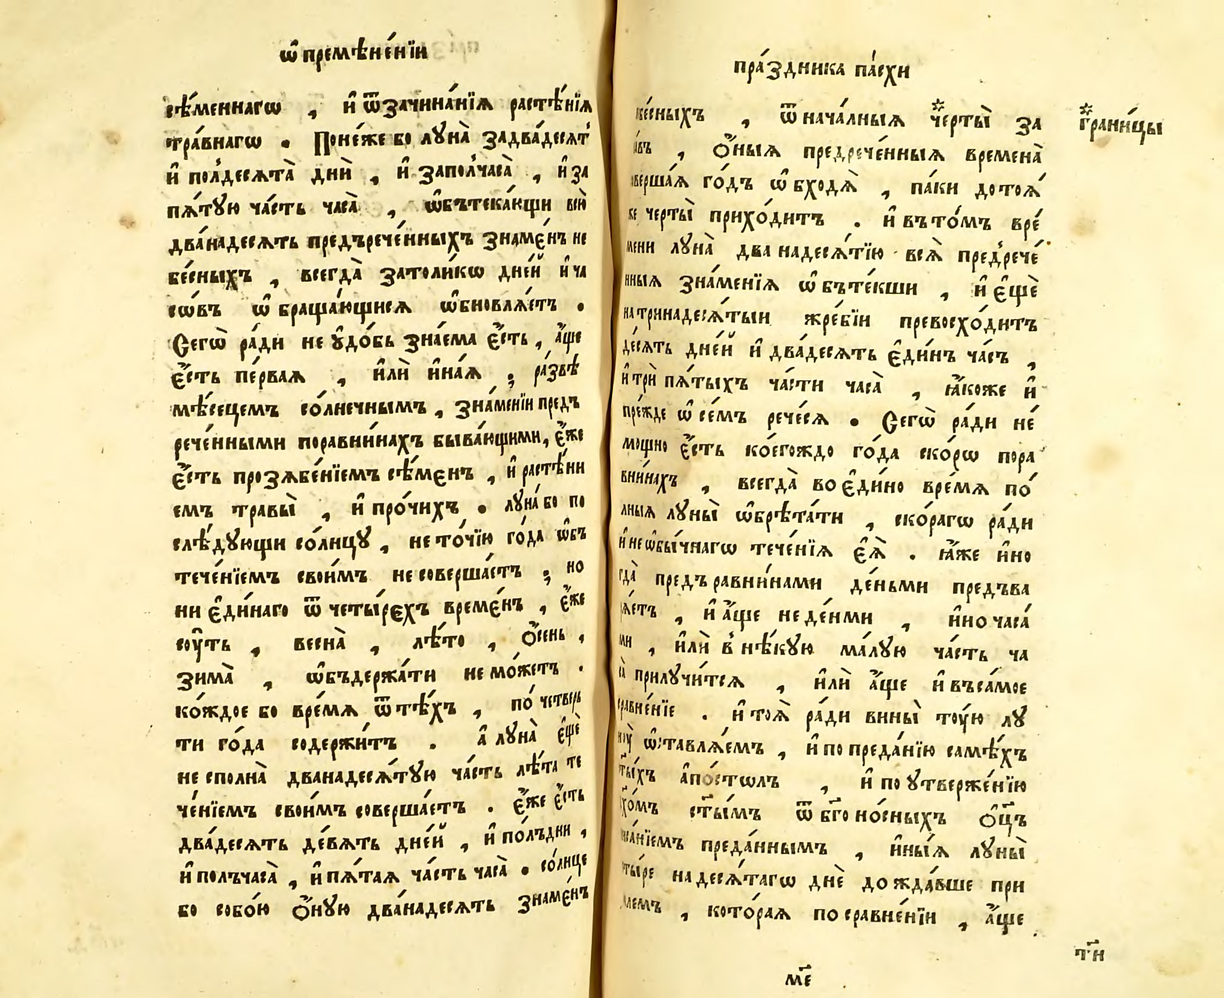 ѡ҆ премѣне́нїи
сѣ́меннагѡ , и҆ ѿзачина́нїѧ расте́нїѧ
тра́внагѡ . Поне́же бо лꙋна̀ задва́десѧт̾
и҆ пол̾десѧта̀ днѝ , и҆ заполчаса̀ , и҆ за
пѧ́тꙋю ча́сть часа̀ , ѡ҆бътека́ющи всѧ̀
два́надесѧть предърече́нныхъ зна́менъ не
бе́сныхъ , всегда̀ затоли́кѡ дне́й и҆ ча
со́въ ѡ҆браща́ющисѧ ѡ҆бновлѧ́етъ .
Сегѡ̀ ра́ди не ᲂу҆до́бь зна́ема є҆́сть , а҆́ще
є҆́сть пе́рваѧ , и҆лѝ и҆на́ѧ ; ра́звѣ
мѣ́сецемъ со́лнечнымъ , зна́менїи предъ
рече́нными поравни́нахъ быва́ющими , є҆́же
є҆́сть прозѧбе́нїемъ сѣ́менъ , и҆ расте́нї
емъ травы̀ , и҆ про́чихъ . лꙋна́ бо по
слѣ́дꙋющи со́лнцꙋ , не то́чїю го́да ѡ҆бъ
тече́нїемъ свои́мъ не соверша́етъ ; но
ни є҆ди́наго ѿ четы́рехъ време́нъ , є҆́же
сꙋ́ть , весна̀ , лѣ́то , ѻ҆́сень ,
зима̀ , ѡ҆бъдержа́ти не мо́жетъ .
ко́ждое бо вре́мѧ ѿ тѣ́хъ , по че́твер
ти го́да содержи́тъ . а҆ лꙋна̀ є҆щѐ
не сполна̀ дванадесѧ́тꙋю ча́сть лѣ́та те
че́нїемъ свои́мъ соверша́етъ . є҆́же є҆́сть
два́десѧть де́вѧть дне́й , и҆ по́лъдни ,
и҆ полъчаса̀ , и҆ пѧ́таѧ ча́сть часа̀ . со́лнце
бо собо́ю ѻ҆́нꙋю два́надесѧть зна́менъ
пра́здника па́схи
бе́сныхъ , ѿ нача́лныѧ * черты̀ за
ѻ҆́ныѧ предрече́нныѧ времена̀
го́дъ ѡ҆бходѧ̀ , па́ки до тоѧ̀
же черты̀ прихо́дитъ . и҆ въ то́мъ вре́
мени лꙋна̀ два надесѧ́тїю всѧ̀ предрече́
нныѧ зна́менїѧ ѡ҆бъте́кши , и҆ є҆щѐ
на тринадесѧ́тыи жре́бїи превосхо́дитъ
де́сѧть дне́й и҆ два́десѧть є҆ди́нъ ча́съ ,
и҆ трѝ пѧ́тыхъ ча́сти часа̀ , ꙗ҆́коже и҆
пре́жде ѡ҆ се́мъ рече́сѧ . Сегѡ̀ ра́ди не
мо́щно є҆́сть коегѡ́ждо го́да ско́рѡ пора
вни́нахъ , всегда̀ во є҆ди́но вре́мѧ по́
лныѧ лꙋны̀ ѡ҆брѣта́ти , ско́рагѡ ра́ди
и҆ не ѡ҆бы́чнагѡ тече́нїѧ є҆ѧ̀ . ꙗ҆́же и҆но
гда̀ предъ равни́нами де́ньми предъва
рѧ́етъ , и҆ а҆́ще не де́нми , и҆но часа́
ми , и҆лѝ в̾ нѣ́кꙋю ма́лꙋю ча́сть ча
са̀ прилꙋчи́тсѧ , и҆лѝ а҆́ще и҆ въ са́мое
сравне́нїе . и҆ тоѧ̀ ра́ди вины̀ тꙋ́ю лꙋ
нꙋ̀ ѡ҆ставлѧ́емъ , и҆ по преда́нїю самѣ́хъ
ст҃ы́хъ а҆по́столъ , и҆ по ᲂу҆твержде́нїю
ст҃ы́мъ ѿ бг҃оно́сныхъ ѻ҆ц҃ъ
преда́ннымъ , и҆ны́ѧ лꙋны̀
четы́ре надесѧ́тагѡ днѐ дожда́вше прі
е́млемъ , кото́раѧ по сравне́нїи , а҆́ще
* грани́цы
т҃и
м҃е